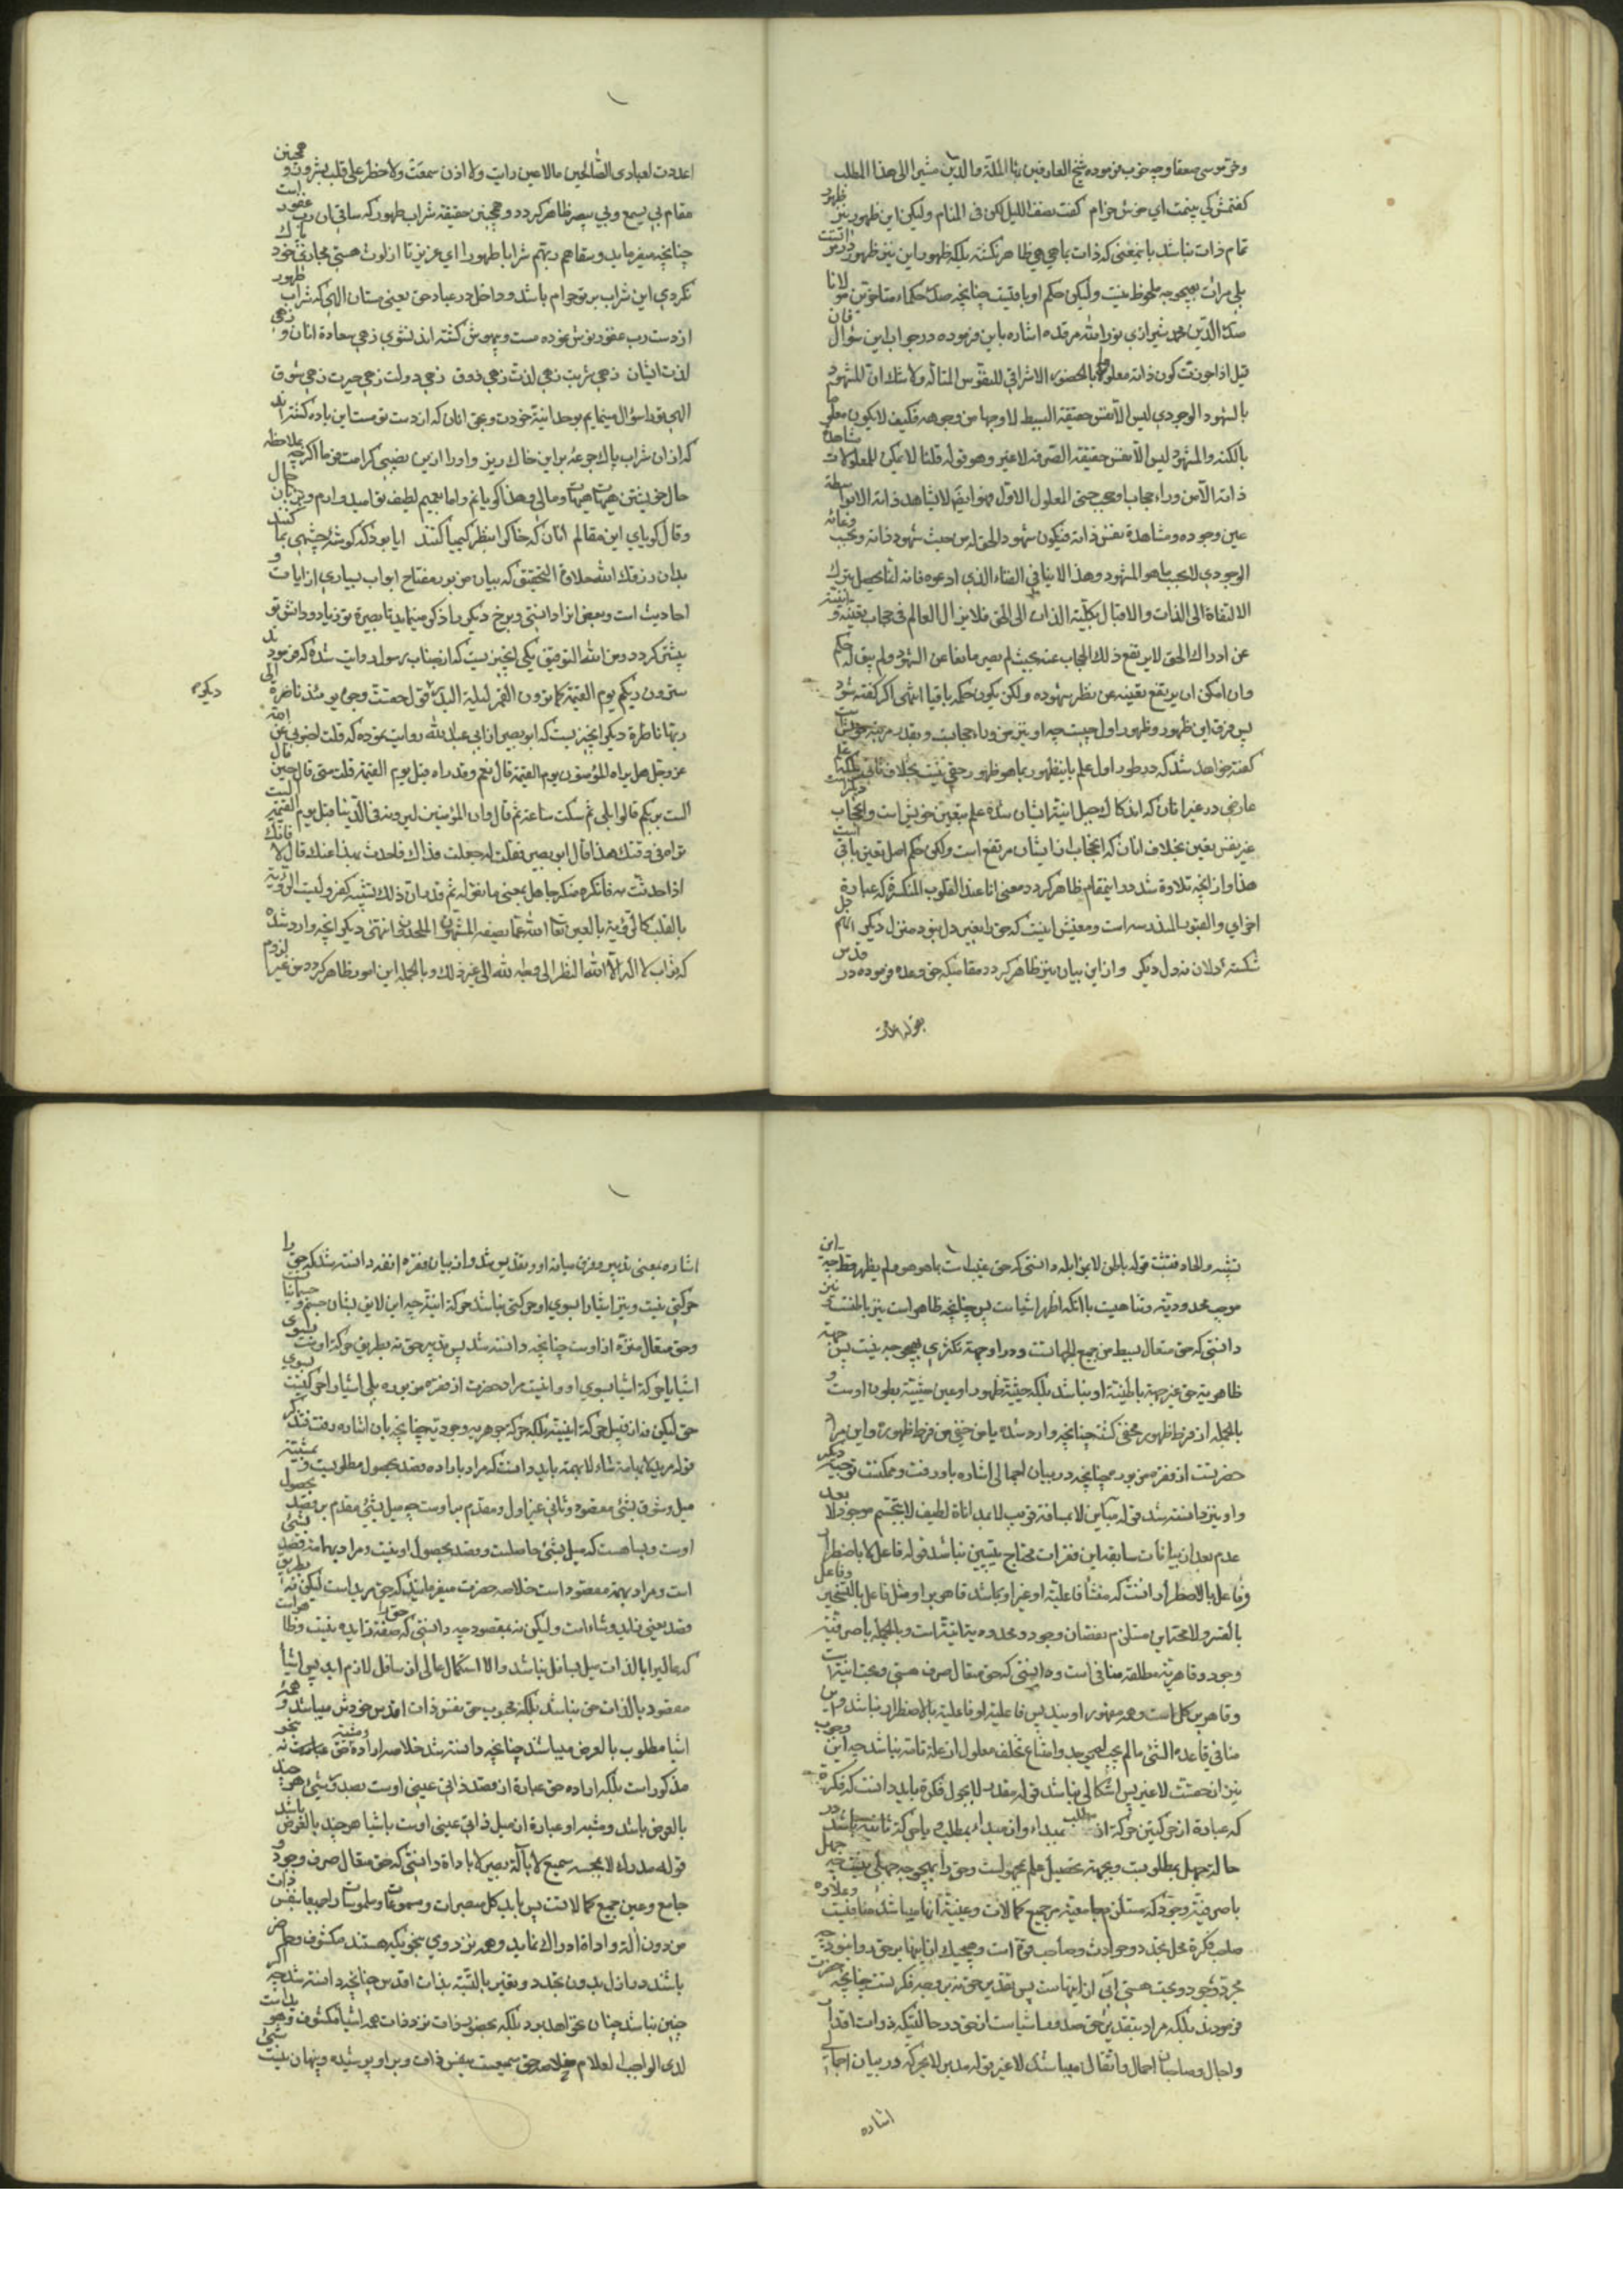 وخرّ موسی صعقا وچه خوب فرموده شیخ العارفین بهآ الملّة والدّین مشیرا الی هذا المطلب
کفتمش کی بینمت ای خوش خرام کفت نصف اللیل لکن فی المنام ولیکن این ظهور نیز ظهور
تمام ذات نباشد بانمعنی که ذات بما هی هی ظاهر نکشته بلکه ظهور این نیز ظهور در
بلی مرات بهیچوجه ملحوظ نیست ولیکن حکم او باقیست چنانچه صدر حکماء متاخرین مولانا
صدر الدّین محمد شیرازی نور الله مرقده اشاره باین فرموده در جواب این سؤال فان
قیل اذا جوزت کون ذاته معلوما بالحضور الاشراقی للنفوس المتألهه ولا شك ان المشهود
بالشهود الوجودی لیس الا نفس حقیقته البسیطه لا وجها من وجوهه فکیف لا یکون معلوما
بالکنه والمشهود لیس الا نفس حقیقته الصرفه لا غیر وهو قوله قلنا لا یمکن للمعلولات مشاهدة
ذاته الا من وراء حجاب او حجب حتی المعلول الاول فهو ایضا لا یشاهد ذاته الا بواسطة
عین وجوده ومشاهدة نفس ذاته فیکون شهود الحق له من حیث شهود ذاته وبحسب وعائه
الوجودی لا بحسب ما هو المشهود وهذا لا ینافی الفناء الذی ادعوه فانه انما یحصل بترك
الالتفاة الی الذات والاقبال بکلّیة الذات الی الحق فلا یزال العالم فی حجاب تعینه وانیته
عن ادراك الحق لا یرتفع ذلك الحجاب عنه بحیث لم یصر مانعا عن الشهود ولم یبق له حکم
وان امکن ان یرتفع تعینه عن نظر شهوده ولکن یکون حکمه باقیا انتهی اکر کفته شود
پس فرق این ظهور وظهور اول چیست چه او نیز من وراء حجابست وبقدر مرتبه خویش است
کفته خواهد شد که در طور اول علم باینظهور بما هو ظهور حق نیست بخلاف ثانی بلکه علم
عارض در غیر انان که اندکاك جبل انیت ایشان شده علم بتعین خویش است واحتجاب
غیر نفس تعین بخلاف انان که احتجاب از ایشان مرتفع است ولکن حکم اصل تعین باقی است
هذا واز انچه تلاوة شد در اینمقام ظاهر کردد معنی انا عند القلوب المنکسرة که عبارة
اخرای والقبور المندرسه است ومعنیش اینست که حق را بغیر دل نبود منزل دیکر
شکسته دلان نه دل دیکر واز این بیان نیز ظاهر کردد مقامیکه حق وعده فرموده در
بقوله اعددت

اعددت لعبادی الصّالحین مالا عین رات ولا اذن سمعت ولا خطر علی قلب بشر ودر همچنین
مقام بی یسمع وبی یبصر ظاهر کردد وهمچنین حقیقة شراب طهور که ساقی ان رب غفور است
چنانچه میفرماید وسقاهم ربّهم شرابا طهورا ای عزیز تا از لوث هستی مجازی خود پاك
نکردی این شراب بر تو حرام باشد وداخل در عباد حق یعنی مستان الهی که شراب طهور
از دست رب غفور نوش نموده مست وبیهوش کشته اند نشوی زهی سعادة انان وزهی
لذت ایشان زهی شربت زهی لذت زهی ذوق زهی دولت زهی حیرت زهی شوق
الهی تورا سؤال مینمایم بوحدانیة خودت وبحق انان که از دست تو مست این باده کشته اند
که از ان شراب پاك جرعه بر این خاك ریز واورا از بین نصیبی کرامت فرما اکرچه بملاحظه
حال خویشتن هیهات هیهات ومالی وهذا کویانم واما بعمیم لطیف تو امیدوارم وبزبان حال
وقال کویای این مقالم انان که خاك را بنظر کیمیا کنند ایا بود که کوشهٔ چشمی بما کنند
بدان رزقك الله حلاوة التحقیق که بیان مزبور مفتاح ابواب بسیاری از ایات و
احادیث است وبعض انرا دانستی وبرخ دیکر را ذکر مینماید تا بصیرة تو زیاد ودانش تو
بیشتر کردد ومن الله التوفیق یکی انچیزیست که از جناب رسول روایت شده که فرمودند
سترون ربکم یوم القیمة کما ترون القمر لیلة البدر قول حقست وجوه یومئذ ناضرة الی
ربها ناظرة دیکر انچیزیست که ابو بصیر از ابی عبد الله روایت نموده که قلت اخبرنی عن الله
عز وجل هل یراه المؤمنون یوم القیمة قال نعم وقد راه قبل یوم القیمة قلت متی قال حین قال
الست بربکم قالوا بلی ثم سکت ساعة ثم قال وان المؤمنین لیرونه فی الدّنیا قبل یوم القیمة الست
تراه فی وقتك هذا قال ابو بصیر فقلت له جعلت فداك فاحدث بهذا عنك قال لا فانك
اذا حدثت به فانکره منکر جاهل بمعنی ما تقوله ثم قدر ان ذلك تشبیه کفر ولیست الرّؤیة
بالقلب کالرّؤیة بالعین تعالی الله عما یصفه المشبّهون والملحدون انتهی دیکر انچه وارد شده
که ثواب لا اله الا الله النظر الی وجه الله الی غیر ذلك وبالجمله این امور ظاهر کردد من غیر لزوم
دیکر

تشبیه والحاد فتثبت قوله باطن لا بمزایله دانستی که حق غیب است بما هو هو ولم یظهر قط چه این
موجب محدودیة وتناهیست با انکه اظهر اشیاست پس چنانچه ظاهر است نیز باطنست نیز
دانستی که حق متعال بسیط من جمیع الجهاتست ودر او جهة تکثری بهیچوجه نیست پس جهة
ظاهریة حق غیر جهة باطنیّة او نباشد بلکه حیثیّة ظهور او عین حیثیّة بطون اوست و
بالجمله از فرط ظهور مختفی کشته چنانچه وارد شده یا من خفی من فرط ظهوره واین مراد
حضرتست از فقره مزبور همچنانچه در بیان اجمالی اشاره باو رفت وممکنست توجیه دیکر
واو نیز دانسته شد قوله مباین لا بمسافة قریب لا بمداناة لطیف لا بتجسّم موجود لا بعد
عدم بعد از بیانات سابقه این فقرات محتاج بتبیین نباشد قوله فاعل لا باضطرار
وفاعل بالاضطرار انست که منشأ فاعلیّة او غیر او باشد قاهر بر او مثل فاعل بالتسخیر وفاعل
بالقسر ولا محة این مستلزم نقصان وجود ومحدودیة انیّة است وبالجمله با صرفیّة
وجود وقاهریّة مطلقه منافی است ودانستی که حق متعال صرف هستی وبحت انیّة است
وقاهر بر کل است وهمه مقهور اویند پس فاعلیة او فاعلیة بالاضطرار نباشد واین
منافی قاعده الشئ ما لم یجب لم یوجد وامتناع تخلف معلول از علة تامه نباشد چه این وجوب
نیز از حقست لا غیر پس اشکالی نباشد قوله مقدر لا بجول فکرة باید دانست که فکرة
که عبارة از حرکتین حرکة از مطلب بمبداء واز مبداء بمطلب یا حرکة ثانیه باشد در
حالة جهل بمطلوبست وبجهة تحصیل علم بمجهولست وحق را بهیچوجه جهلی نیست چه جهل
با صرفیّة وجود که مستلزم جامعیة مر جمیع کمالات وعینیّة انها میباشد منافیست وعلاوه
صاحب فکرة محل تجدد وحوادث وصاحب قوة است وهیچیك از اینها بر حق روا نبود چه
مجرّد وجود وبحت هستی ابی از اینهاست پس تقدیر حق نه بر وجه فکر تست چنانچه حضرت
فرمودند بلکه مراد بتقدیر حق صدور اشیاست از حق در حالتیکه ذوات اقدار
واجال وصاحبان احمال واثقال میباشند لا غیر قوله مدبر لا بحرکة در بیان اجمالی
اشاره

اشاره بمعنی تدبیر وفرق میانه او وتقدیر شد واز بیان فقره انفه دانسته شد که حق را
حرکتی نیست ونیز اشیارا بسوی او حرکتی نباشد حرکة اینیّة چه این لایق بشان جسم وجسمانیاست
وحق متعال منزه از اوست چنانچه دانسته شد پس تدبیر حق نه بطریق حرکة اوست بسوی
اشیا یا حرکة اشیا بسوی او واینست مراد حضرت از فقره مزبوره بلی اشیارا حرکتیست بسوی
حق لیکن نه از قبیل حرکة اینیة بلکه حرکة جوهریه وجودیة چنانچه بان اشاره رفت فتذکر
قوله مرید لا بهمامة شاء لا بهمة باید دانست که مراد باراده قصد بحصول مطلوبست وبمشیّة
میل وشوق بشئ مقصود وثانی غیر اول ومقدم بر اوست چه میل بشئ مقدم بر قصد بحصول
اوست وبسا هست که میل بشئ حاصلست وقصد بحصول او نیست ومراد بهمامة قصد بشئ
است ومراد بهمة مقصود است خلاصه حضرت میفرمایند که حق مرید است لیکن نه بطریق
قصد یعنی زاید وشاء است ولیکن نه بمقصود چه دانستی که حق را صفة زایده نیست وظاهر است
که عالیرا بالذات میل بسافل نباشد والا استکمال عالی از سافل لازم اید پس اشیا
مقصود بالذات حق نباشد بلکه محبوب حق نفس ذات اقدس خودش میباشد وهمه
اشیا مطلوب بالعرض میباشد چنانچه دانسته شد خلاصه اراده ومشیة حق نه بنحو
مذکور است بلکه اراده حق عبارة از قصد ذاتی عینی اوست بصدور شئ هر چند
بالعرض باشد ومشیه او عبارة از میل ذاتی عینی اوست باشیا هر چند بالعرض باشد
قوله مدرك لا بمجسه سمیع لا بآلة بصیر لا باداة دانستی که حق متعال صرف وجود و
جامع وعین جمیع کمالاتست پس باید کل مبصرات ومسموعات وملموسات را جمیعا بنفس ذات
من دون الة واداة ادراك نماید وهمه نزد وی بنحویکه هستند مکشوف وحاضر
باشند در ازل بدون تجدد وتغیر بالنّسبة بذات اقدس چنانچه دانسته شد چه اکر
چنین نباشد چنان نخواهد بود بلکه بحضور ذات نزد ذات همه اشیا مکشوف وهو
لدی الواجب العلام خلاصه حق سمیعست بنفس ذات وبر او پوشیده وپنهان نیست شئ